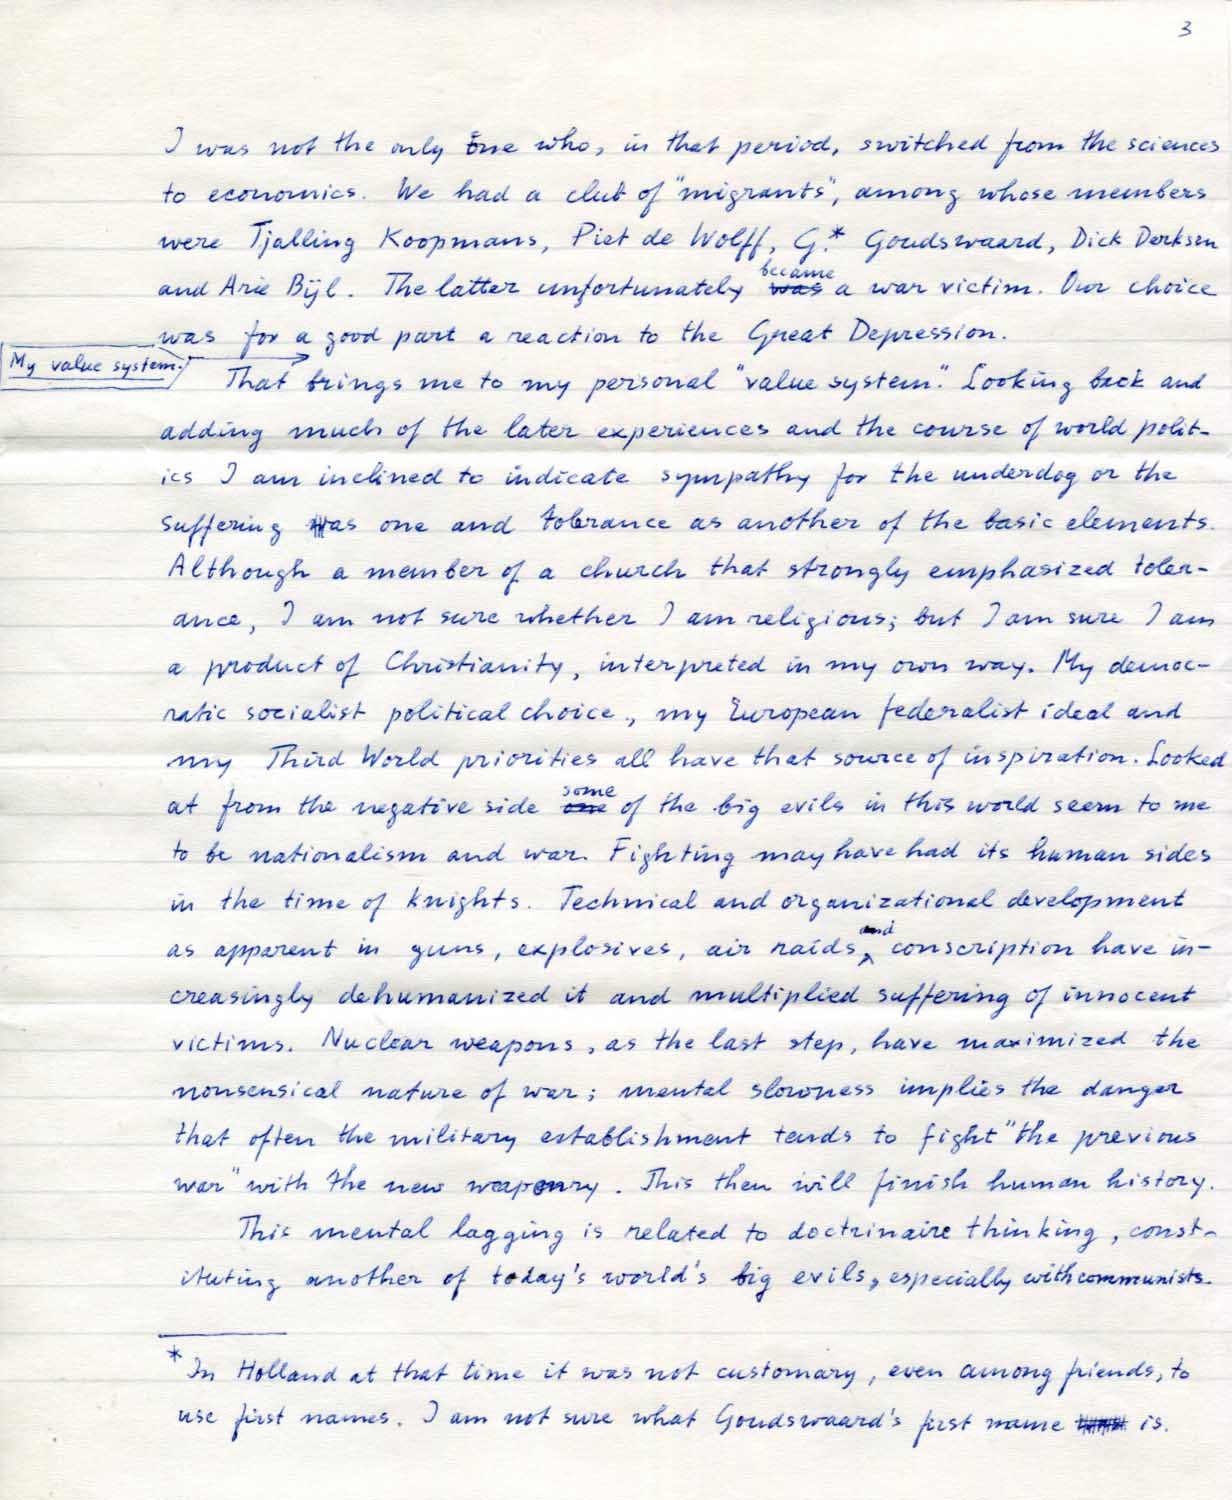 3
I was not the only one who, in that period, switched from the sciences
to economics. We had a club of "migrants", among whose members
were Tjalling Koopmans, Piet de Wolff, G.* Goudswaard, Dick Derksen
and Arie Bijl. The latter unfortunately was became a war victim. Our choice
was for a good part a reaction to the Great Depression.
My value system.
That brings me to my personal "value system". Looking back and
adding much of the later experiences and the course of world polit-
ics I am inclined to indicate sympathy for the underdog or the
suffering as one and tolerance as another of the basic elements.
Although a member of a church that strongly emphasized toler-
ance, I am not sure whether I am religious; but I am sure I am
a product of Christianity, interpreted in my own way. My democ-
ratic socialist political choice, my European federalist ideal and
my Third World priorities all have that source of inspiration. Looked
at from the negative side one some of the big evils in this world seem to me
to be nationalism and war. Fighting may have had its human sides
in the time of knights. Technical and organizational development
as apparent in guns, explosives, air raids, and conscription have in-
creasingly dehumanized it and multiplied suffering of innocent
victims. Nuclear weapons, as the last step, have maximized the
nonsensical nature of war; mental slowness implies the danger
that often the military establishment tends to fight "the previous
war" with the new weaponry. This then will finish human history.
This mental lagging is related to doctrinaire thinking, const-
ituting another of today's world's big evils, especially with communists.
* In Holland at that time it was not customary, even among friends, to
use first names. I am not sure what Goudswaard's first name is.